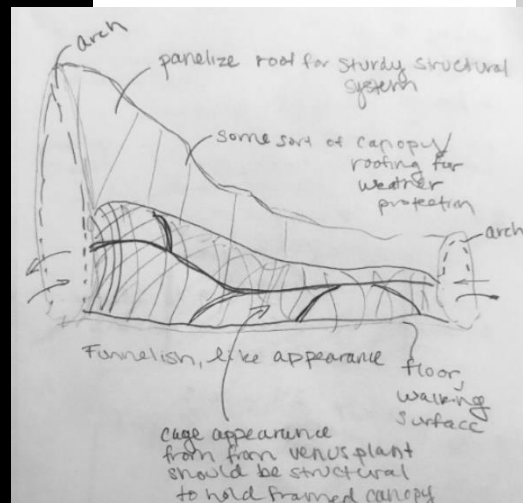 arch
panelize roof for sturdy structural
system
some sort of canopy/
roofing for
weather
protection
arch
Funnelish, like appearance
floor,
walking
surface
cage appearance
from from venus plant
should be structural
to hold framed canopy